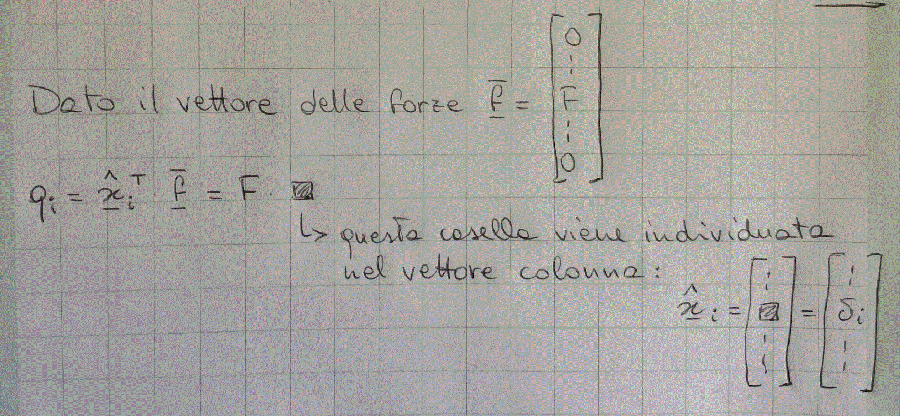 Dato il vettore delle forze f̲̅ = [0 ¦ F ¦ 0]
qᵢ = x̲̂ᵢᵀ f̲̅ = F · ▨
↳ questa casella viene individuata
nel vettore colonna:
x̲̂ᵢ = [¦ ▨ ¦] = [¦ δᵢ ¦]